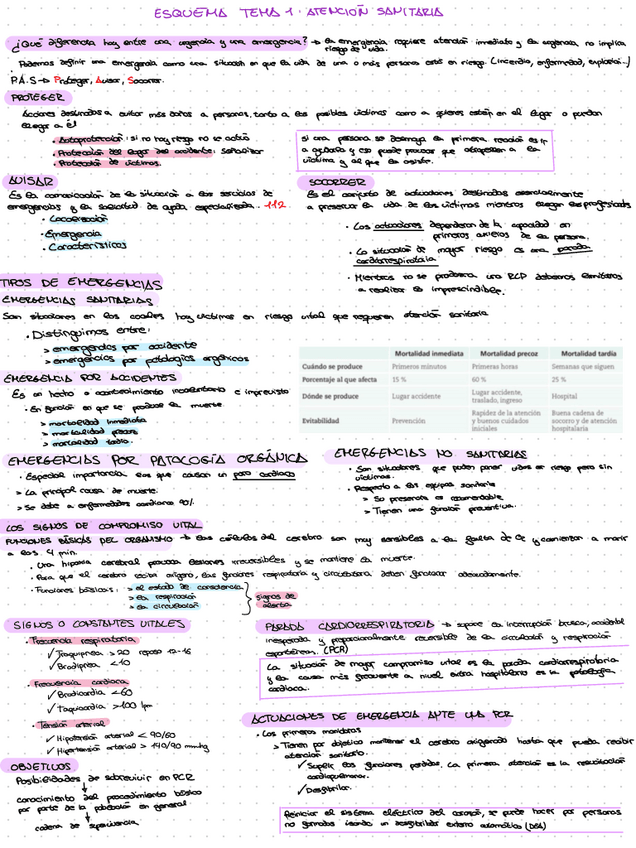 ESQUEMA TEMA 1: ATENCIÓN SANITARIA
¿Qué diferencia hay entre una urgencia y una emergencia? → la emergencia requiere atención inmediata y la urgencia no implica
riesgo de vida.
Podemos definir una emergencia como una situación en que la vida de una o más personas está en riesgo. (incendio, enfermedad, explosión...)
P.A.S → Proteger, Avisar, Socorrer.
PROTEGER
Acciones destinadas a evitar más daños a personas, tanto a las posibles víctimas como a quienes estén en el lugar o puedan
llegar a él
· Autoprotección: si no hay riesgo no se actúa
· Protección del lugar del accidente: Señalizar
· Protección de víctimas.
si una persona se desmaya la primera reacción es ir
a ayudarla y eso puede provocar que atropellen a la
víctima y al que la asiste.
AVISAR
Es la comunicación de la situación a los servicios de
emergencias y la solicitud de ayuda especializada. 112
· Localización
· Emergencia
· Características
SOCORRER
Es el conjunto de actuaciones destinadas esencialmente
a preservar la vida de las víctimas mientras llegan los profesionales
· Las actuaciones dependerán de la capacidad en
primeros auxilios de la persona.
· La situación de mayor riesgo es una parada
cardiorrespiratoria
· Mientras no se produzca una RCP debemos limitarnos
a realizar lo imprescindible.
TIPOS DE EMERGENCIAS
EMERGENCIAS SANITARIAS
Son situaciones en las cuales hay víctimas en riesgo vital que requieren atención sanitaria
· Distinguimos entre:
> emergencias por accidente
> emergencias por patologías orgánicas
EMERGENCIA POR ACCIDENTES
Es un hecho o acontecimiento involuntario e imprevisto
· En función en que se produce la muerte.
> mortalidad inmediata
> mortalidad precoz
> mortalidad tardía.
Mortalidad inmediata Mortalidad precoz Mortalidad tardía
Cuándo se produce Primeros minutos Primeras horas Semanas que siguen
Porcentaje al que afecta 15 % 60 % 25 %
Dónde se produce Lugar accidente Lugar accidente, traslado, ingreso Hospital
Evitabilidad Prevención Rapidez de la atención y buenos cuidados iniciales Buena cadena de socorro y de atención hospitalaria
EMERGENCIAS POR PATOLOGÍA ORGÁNICA
· Especial importancia las que causan un paro cardíaco
> La principal causa de muerte.
> Se debe a enfermedades cardíacas 90%.
EMERGENCIAS NO SANITARIAS
· Son situaciones que pueden poner vidas en riesgo pero sin
víctimas.
· Respecto a los equipos sanitarios
> Su presencia es recomendable
> Tienen una función preventiva.
LOS SIGNOS DE COMPROMISO VITAL
FUNCIONES BÁSICAS DEL ORGANISMO → las células del cerebro son muy sensibles a la falta de O₂ y comienzan a morir
a los 4 min.
· Una hipoxia cerebral provoca lesiones irreversibles y se mantiene la muerte.
· Para que el cerebro reciba oxígeno, las funciones respiratoria y circulatoria deben funcionar adecuadamente.
· Funciones básicas: > el estado de consciencia
> la respiración
> la circulación
signos de
alerta
SIGNOS O CONSTANTES VITALES
· Frecuencia respiratoria
✓ Taquipnea > 20 reposo 12-16
✓ Bradipnea < 10
· Frecuencia cardíaca
✓ Bradicardia < 60
✓ Taquicardia > 100 lpm
· Tensión arterial
✓ Hipotensión arterial < 90/60
✓ Hipertensión arterial > 140/90 mmHg
PARADA CARDIORRESPIRATORIA → supone la interrupción brusca, accidental
inesperada y proporcionalmente reversible de la circulación y respiración
espontáneas. (PCR)
La situación de mayor compromiso vital es la parada cardiorrespiratoria
y la causa más frecuente a nivel extra hospitalario es la patología
cardíaca.
OBJETIVOS
Posibilidades de sobrevivir en PCR
↓
conocimiento del procedimiento básico
por parte de la población en general
↓
cadena de supervivencia
ACTUACIONES DE EMERGENCIA ANTE UNA PCR
· Las primeras maniobras
> Tienen por objetivo mantener el cerebro oxigenado hasta que pueda recibir
atención sanitaria.
✓ Suplir las funciones perdidas. La primera atención es la resucitación
cardiopulmonar.
✓ Desfibrilar.
Reiniciar el sistema eléctrico del corazón, se puede hacer por personas
no formadas usando un desfibrilador externo automático (DEA)